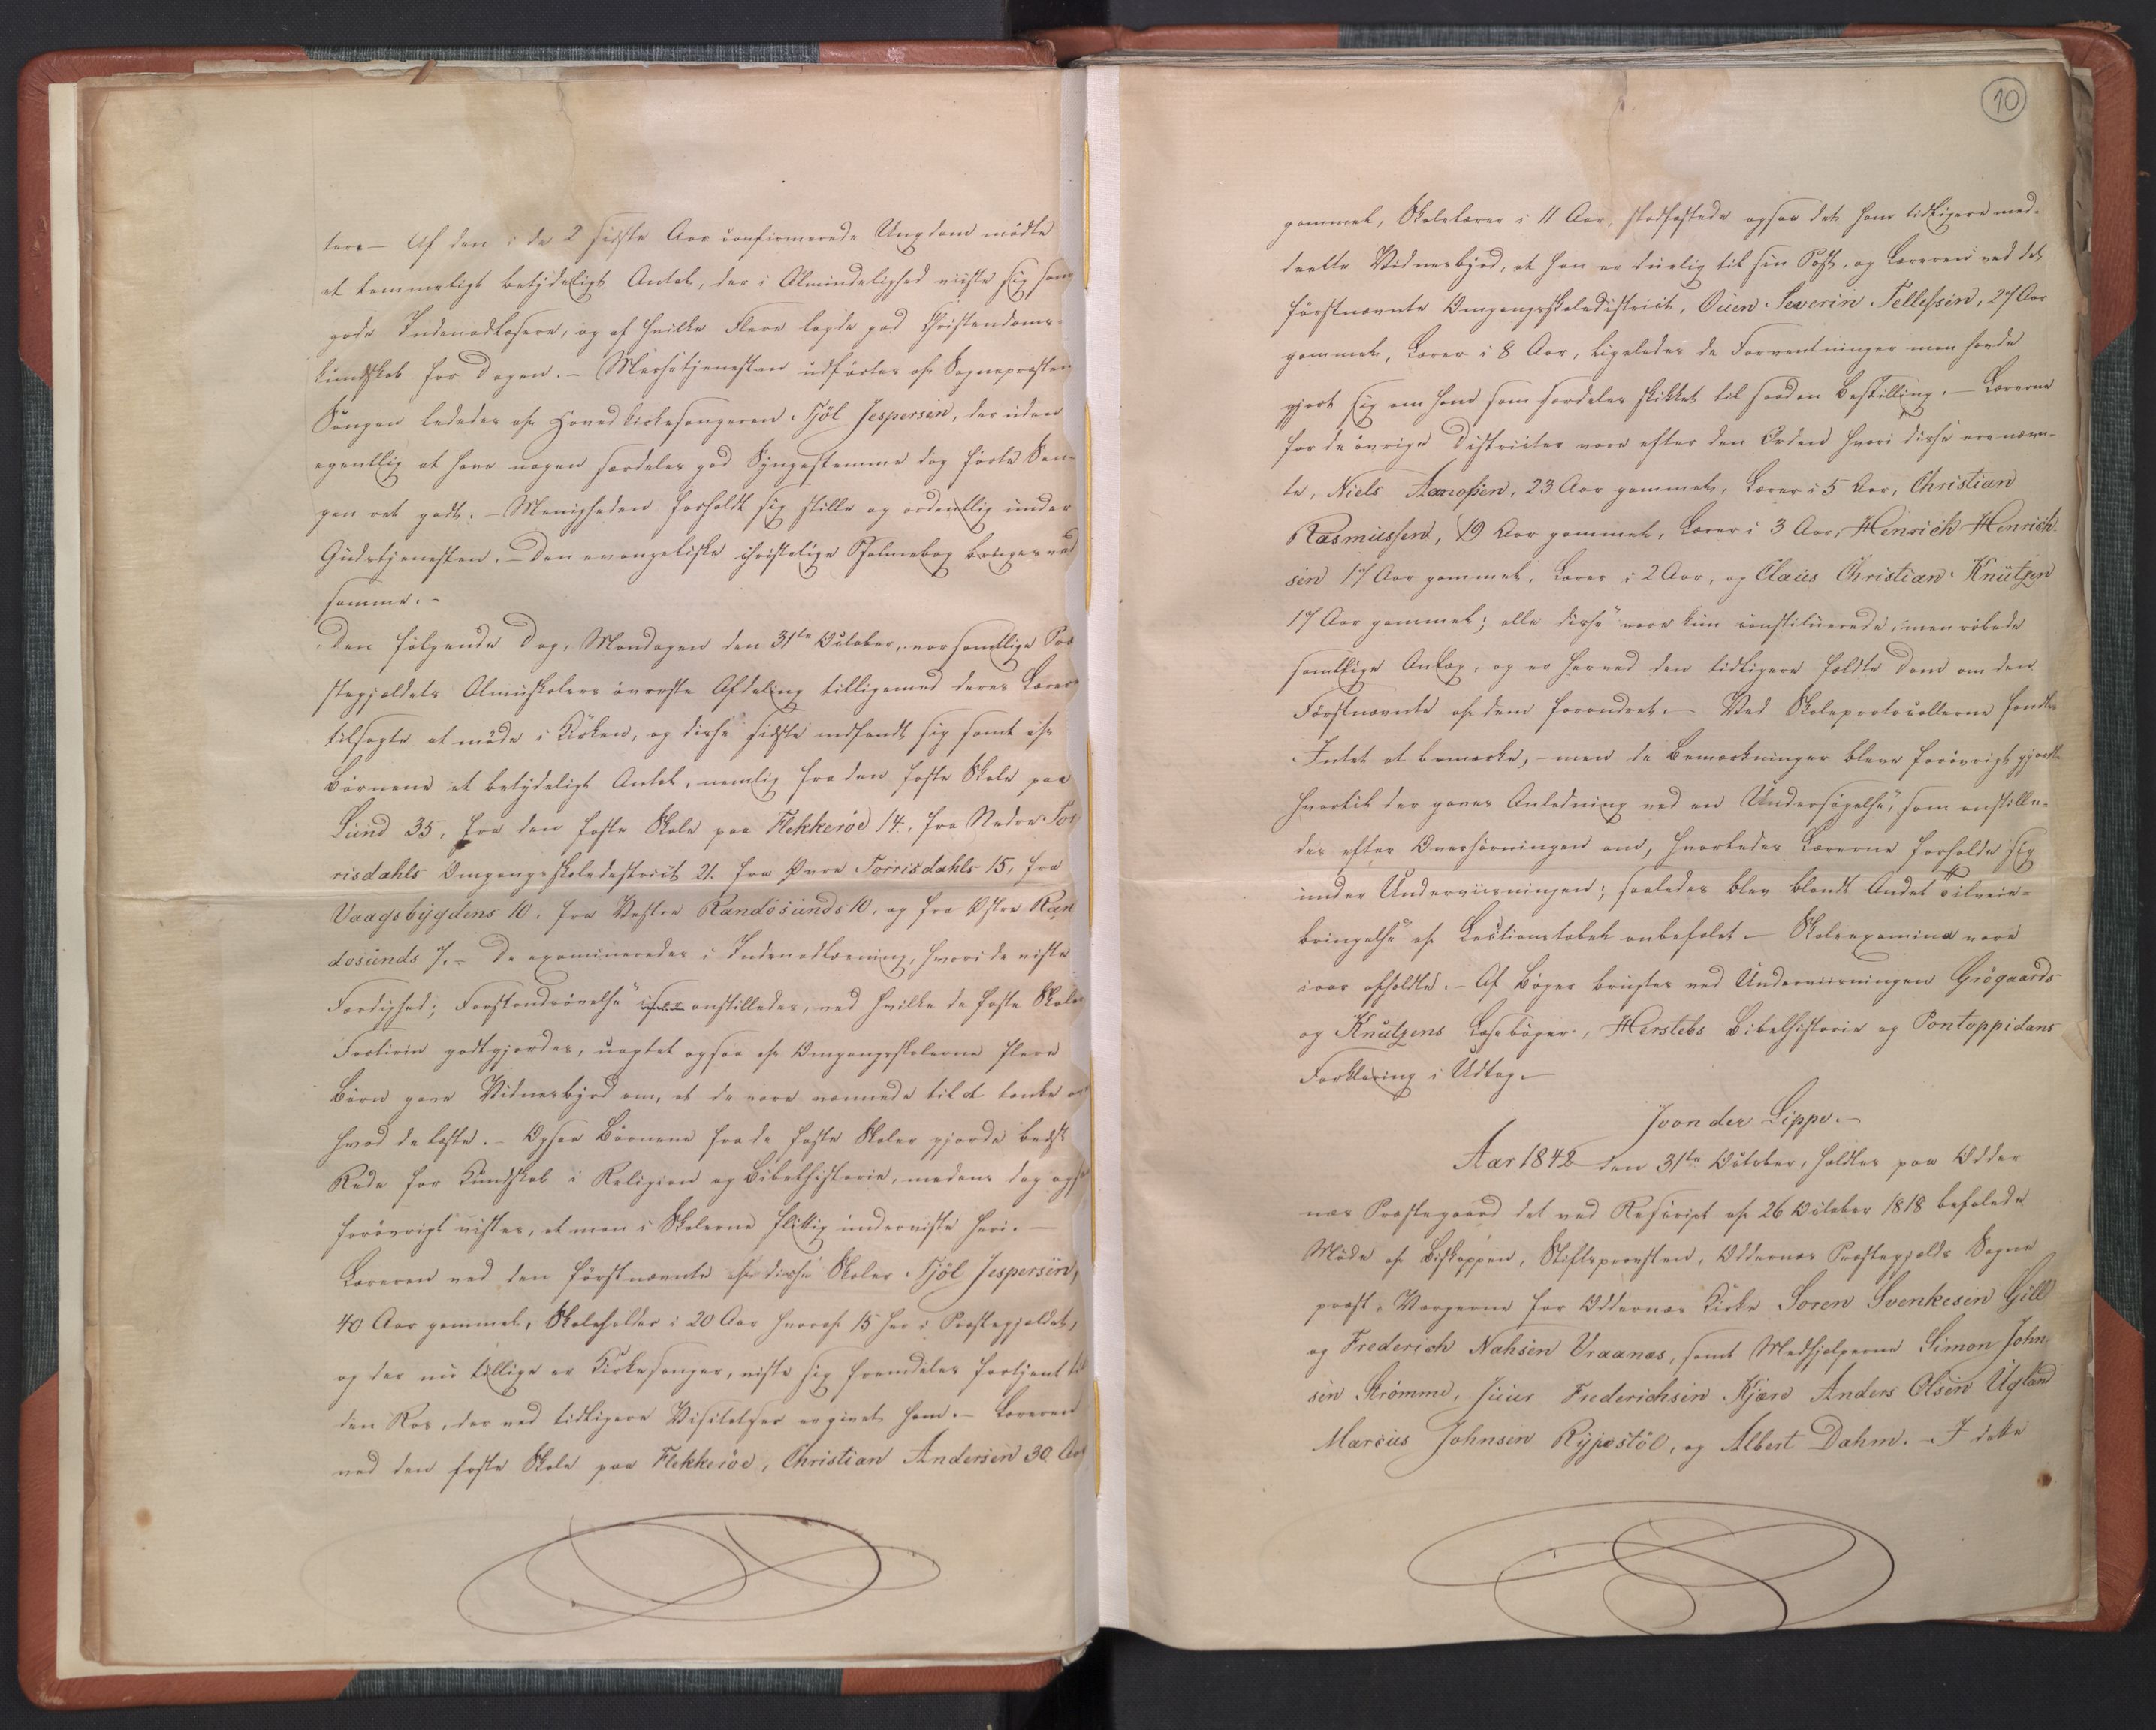 tere – Af den i de 2 sidste Aar confirmerede Ungdom mödte
et temmeligt betydeligt Antal, der i Almindelighed viiste sig som
gode Indenadlæsere, og af hvilke Flere lagde god Christendoms-
kundskab for Dagen. – Messetjenesten udførtes af Sognepræsten
Sangen lededes af Hovedkirkesangeren Fjöl Jespersen, der uden
egentlig at have nogen særdeles god Syngestemme dog førte San-
gen ret godt. – Menigheden forholdt sig stille og ordentlig under
Gudstjenesten. – Den evangeliske christelige Psalmebog bruges ved
samme. –
Den følgende Dag, Mandagen den 31te October, var samtlige Præ
stegjældets Almuskolers överste Afdeling tilligemed deres Lærere
tilsagte at møde i Kirken, og disse sidste indfandt sig samt af
Börnene et betydeligt Antal, nemlig fra den faste Skole paa
Lund 35, fra den faste Skole paa Flekkeröe 14, fra Nedre Tor
risdahls Omgangsskoledistrict 21. fra Övre Torrisdahls 15, fra
Vaagsbygdens 10, fra Vestre Randösunds 10, og fra Østre Ran
dösunds 7. – De examineredes i Indenadlæsning, hvori de viste
Færdighed; Forstandsøvelse anstilledes, ved hvilke de faste Skolers
Fortrin godtgjordes, uagtet ogsaa af Omgangsskolerne flere
Börn gave Vidnesbyrd om, at de vare vannede til at tænke over
hvad de læste. – Ogsaa Börnene fra de faste Skoler gjorde bedst
Rede for Kundskab i Religion og Bibelhistorie, medens dog ogsaa
forövrigt vistes, at man i Skolerne flittig underviste heri. –
Læreren ved den förstnævnte af disse Skoler Fjöl Jespersen,
40 Aar gammel, Skoleholder i 20 Aar hvoraf 15 her i Præstegjældet,
og der nu tillige er Kirkesanger, viste sig fremdeles fortjent til
den Ros, der ved tidligere Visitatser er givet ham. – Læreren
ved den faste Skole paa Flekkeröe, Christian Andersen 30 Aar
10
gammel, Skolelærer i 11 Aar, stadfæstede ogsaa det ham tidligere med-
deelte Vidnesbyrd, at han er duelig til sin Post, og Læreren ved det
förstnævnte Omgangsskoledistrict, Ouen Severin Tellefsen, 27 Aar
gammel, Lærer i 8 Aar, ligeledes de Forventninger man havde
gjort sig om ham som særdeles skikket til saadan Bestilling. – Lærerne
for de övrige Districter vare efter den Orden hvori disse ere nævn-
te, Niels Aanopsen, 23 Aar gammel, Lærer i 5 Aar, Christian
Rasmussen, 19 Aar gammel, Lærer i 3 Aar, Henrich Henrich
sen 17 Aar gammel, Lærer i 2 Aar, og Claus Christian Knutzen
17 Aar gammel; alle disse vare kun constituerede, men röbede
samtlige Anlæg, og er herved den tidligere fældte Dom om den
Förstnævnte af dem forandret. – Ved Skoleprotocollerne fandtes
Intet at bemærke, – men de Bemærkninger bleve forövrigt gjorte
hvortil der gaves Anledning ved en Undersögelse, som anstille-
des efter Overhörningen om, hvorledes Lærerne forholde sig
under Underviisningen; saaledes blev blandt Andet Tilveie-
bringelse af Lectionstabel anbefalet. – Skoleexamina vare
iaar afholdte. – Af Böger brugtes ved Underviisningen Grögaards
og Knutzens Læseböger, Herslebs Bibelhistorie og Pontoppidans
Forklaring i Udtog. –
J von der Lippe. –
Aar 1842 den 31te October, holdtes paa Odder
næs Præstegaard det ved Rescript af 26 October 1818 befalede
Möde af Biskoppen, Stiftsprovsten, Oddernæs Præstegjælds Sogne
præst, Værgerne for Oddernæs Kirke Soren Svenkesen Gill
og Frederich Nahsen Vraanæs, samt Medhjelperne Simon John
sen Strömme, Juur Frederichsen Kjære Anders Olsen Ugland
Marcus Johnsen Rypestöl, og Albert Dahm. – I dette